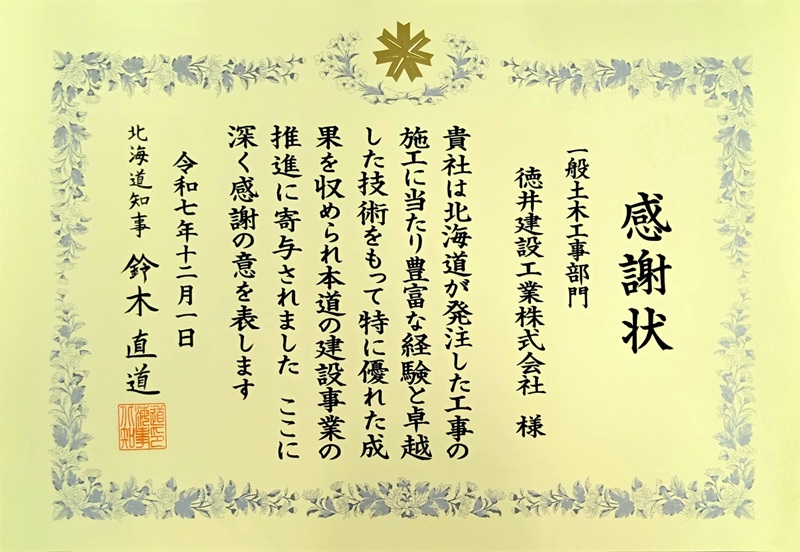 感謝状
一般土木工事部門
徳井建設工業株式会社 様
貴社は北海道が発注した工事の
施工に当たり豊富な経験と卓越
した技術をもって特に優れた成
果を収められ本道の建設事業の
推進に寄与されました ここに
深く感謝の意を表します
令和七年十二月一日
北海道知事 鈴木直道